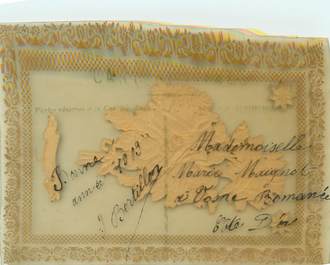 Bonne
année 1913
J Bertillon
Mademoiselle
Marie Maugnot
à Vosne Romanée
Côte D'or